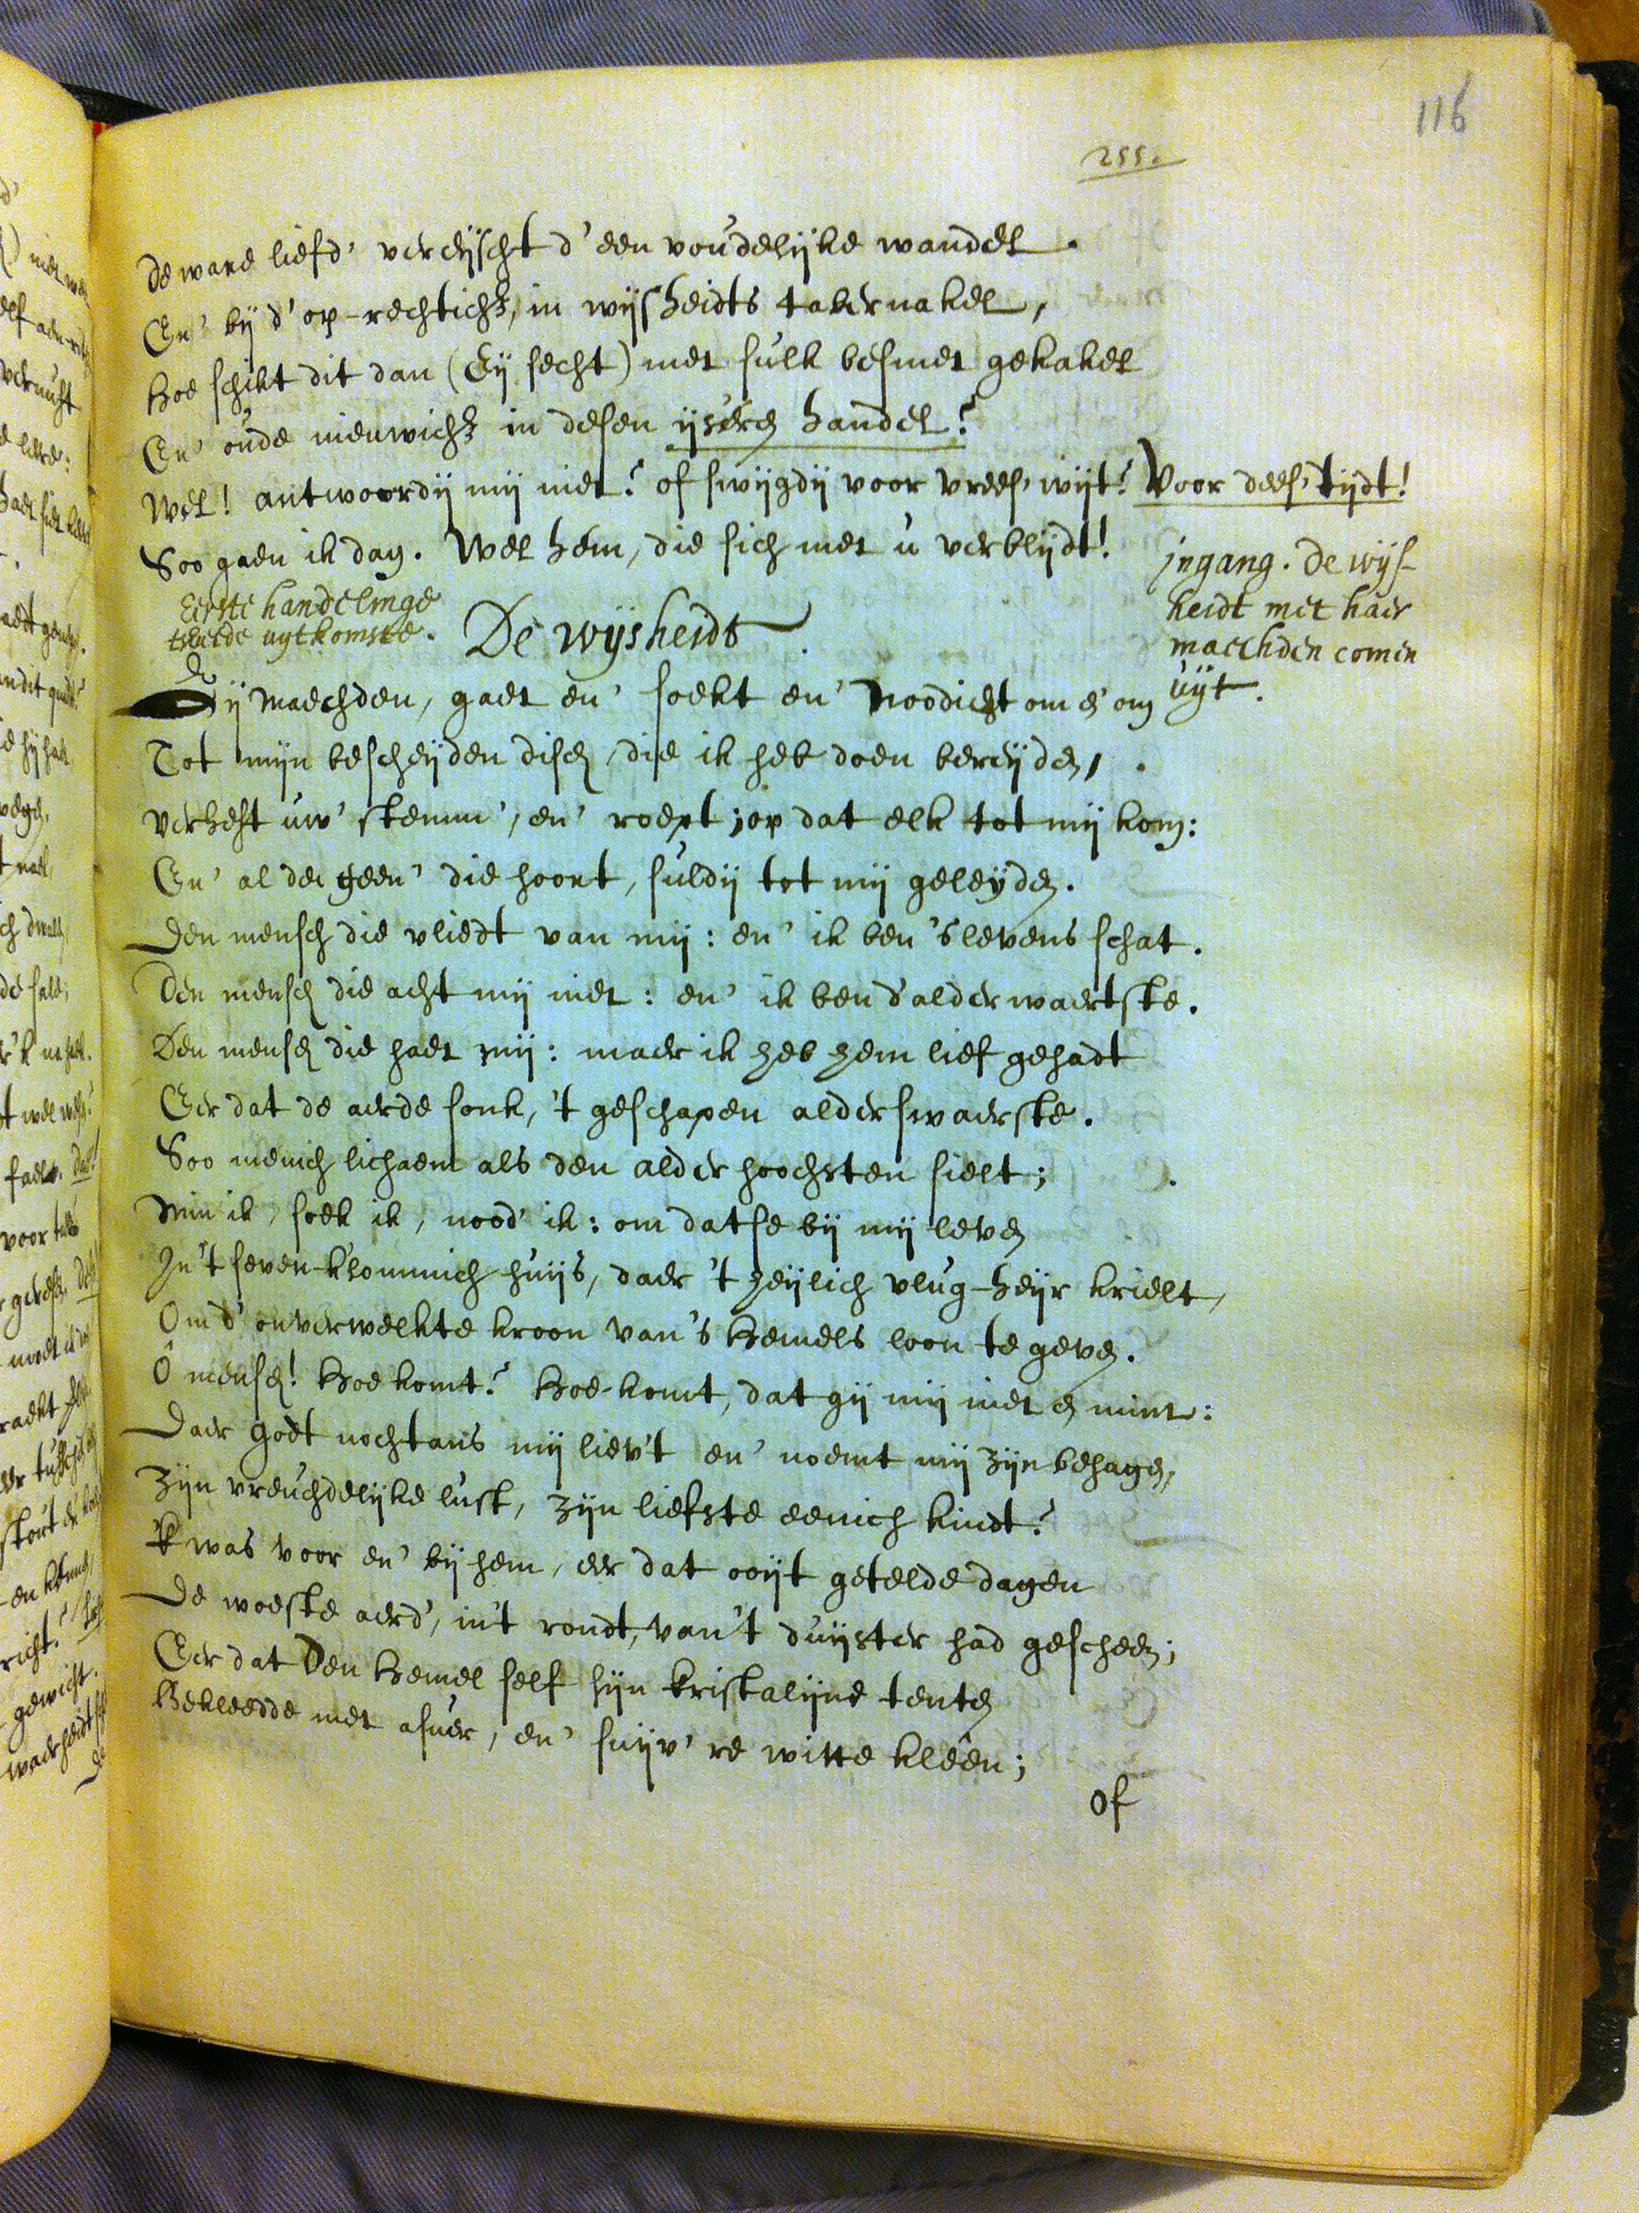 116
255.
De ware liefd' vereijscht d'een voudelijke wandel.
En' bij d'op-rechtich3, in wijsheidts tabernakel,
Hoe schikt dit dan (Eij secht) met sulk besmet gekakel
En' oude nieuwich3 in desen ijseren handel?
Wel! antwoordij mij niet? of swijgdij voor vrees' wijt? Voor dees' tijdt!
Soo gaen ik dan. Wel hem, die sich met u verblijdt!
Eerste handelinge
tweede uytkomste.
De wijsheidt.
jngang. De wijs-
heidt met haer
maechden comen
uijt.
Gij Maechden, gaet en' soekt en' Noodicht om en' om
Tot mijn bescheijden disch, die ik heb doen bereijden,
verheft uw' stemm', en' roept; op dat elk tot mij kom:
En' al de geen' die hoort, suldij tot mij geleyden.
Den mensch die vliedt van mij: en' ik ben 's levens schat.
Den mensch die acht mij niet: en' ik ben d'alderwaertste.
Den mensch die haet mij: maer ik heb hem lief gehadt
Eer dat de aerde sonk, 't geschapen alderswaerste.
Soo menich lichaem als den alderhoochsten sielt;
Min ik, soek ik, nood' ik: om datse bij mij leven
In't seven-klommich huijs, daer 't heijlich vlug-heijr krielt,
Om d'onverwelkte kroon van's Hemels loon te geven.
O mensch! Hoe komt? Hoe-komt, dat gij mij niet en mint:
Daer Godt nochtans mij liev't en' noemt mij Zijn behagen,
Zijn vreuchdelijke lust, Zijn liefste eenich kindt?
'K was voor en' bij hem, eer dat ooijt getelde dagen
De woeste aerd', in't rondt, van't duijster had gescheen;
Eer dat Den Hemel self sijn kristalijne tenten
Bekleedde met asuer, en' suijv're witte kleên;
Of